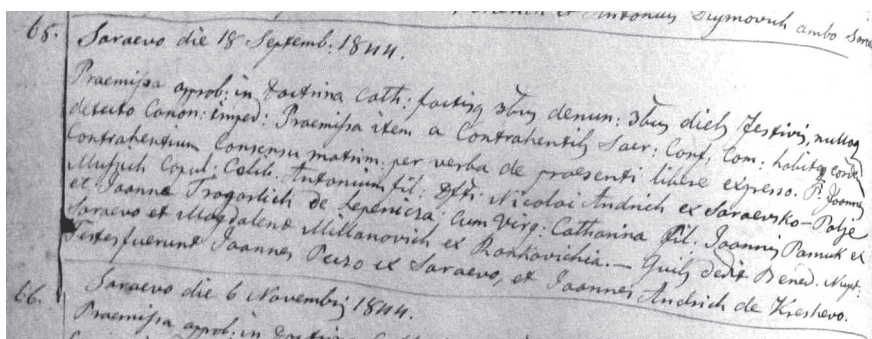 et Antonius ambo
65. Saraevo die 18 Septemb: 1844.
Praemissa approb: in Doctrina Cath: factisq 3bus denun: 3bus dieb festivis, nulloq
detecto Canon: imped: Praemissa item a Contrahentib Sacr: Conf: Com: habitoq eorde
Contrahentium Consensu matrim: per verba de praesenti libere expresso. P. Joannes
Copul: Antonium fil: Nicolai Andrich ex Saraevsko-Polje
et Joanna Tragarlich de Lepenicza: cum Virg: Catharina fil. Joannis Pamuk ex
Saraevo et Magdalena Millanovich ex Rankovichia. — Quib dedit Bened. Nupt:
Testes fuerunt Joannes Puzo ex Saraevo, et Joannes Andrich de Kreshevo.
66. Saraevo die 6 Novembris 1844.
Praemissa approb: in Doctrina